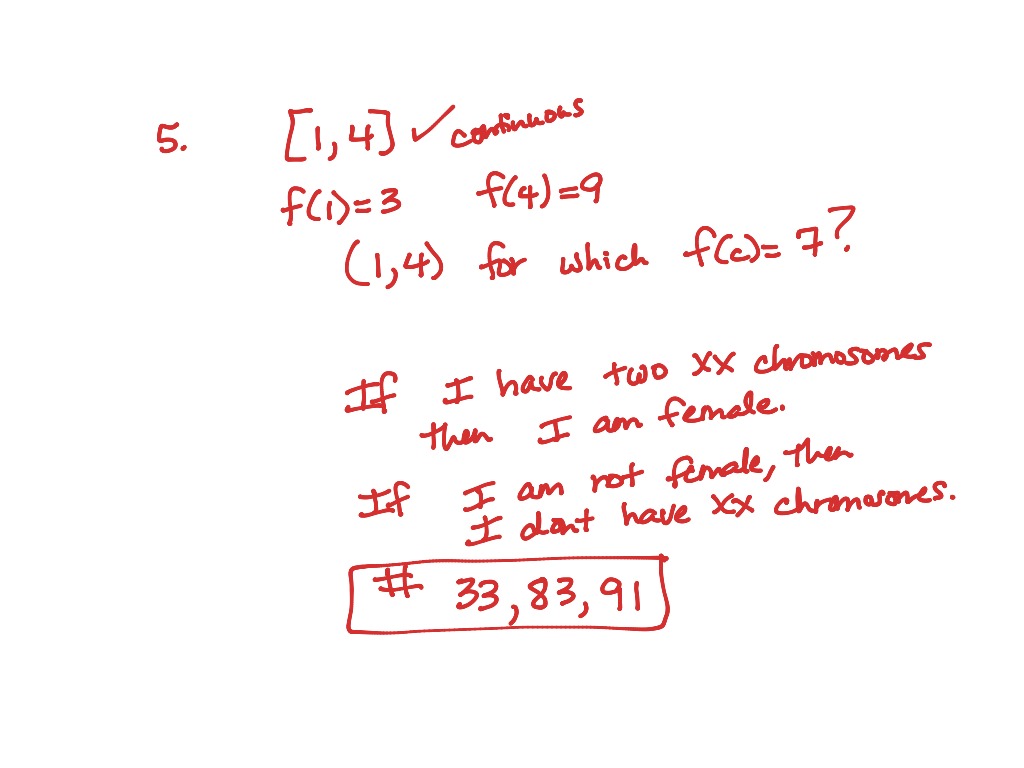 5. [1,4] ✓ continuous
f(1)=3 f(4)=9
(1,4) for which f(c)= 7?
If I have two XX chromosomes
then I am female.
If I am not female, then
I dont have XX chromosomes.
# 33, 83, 91